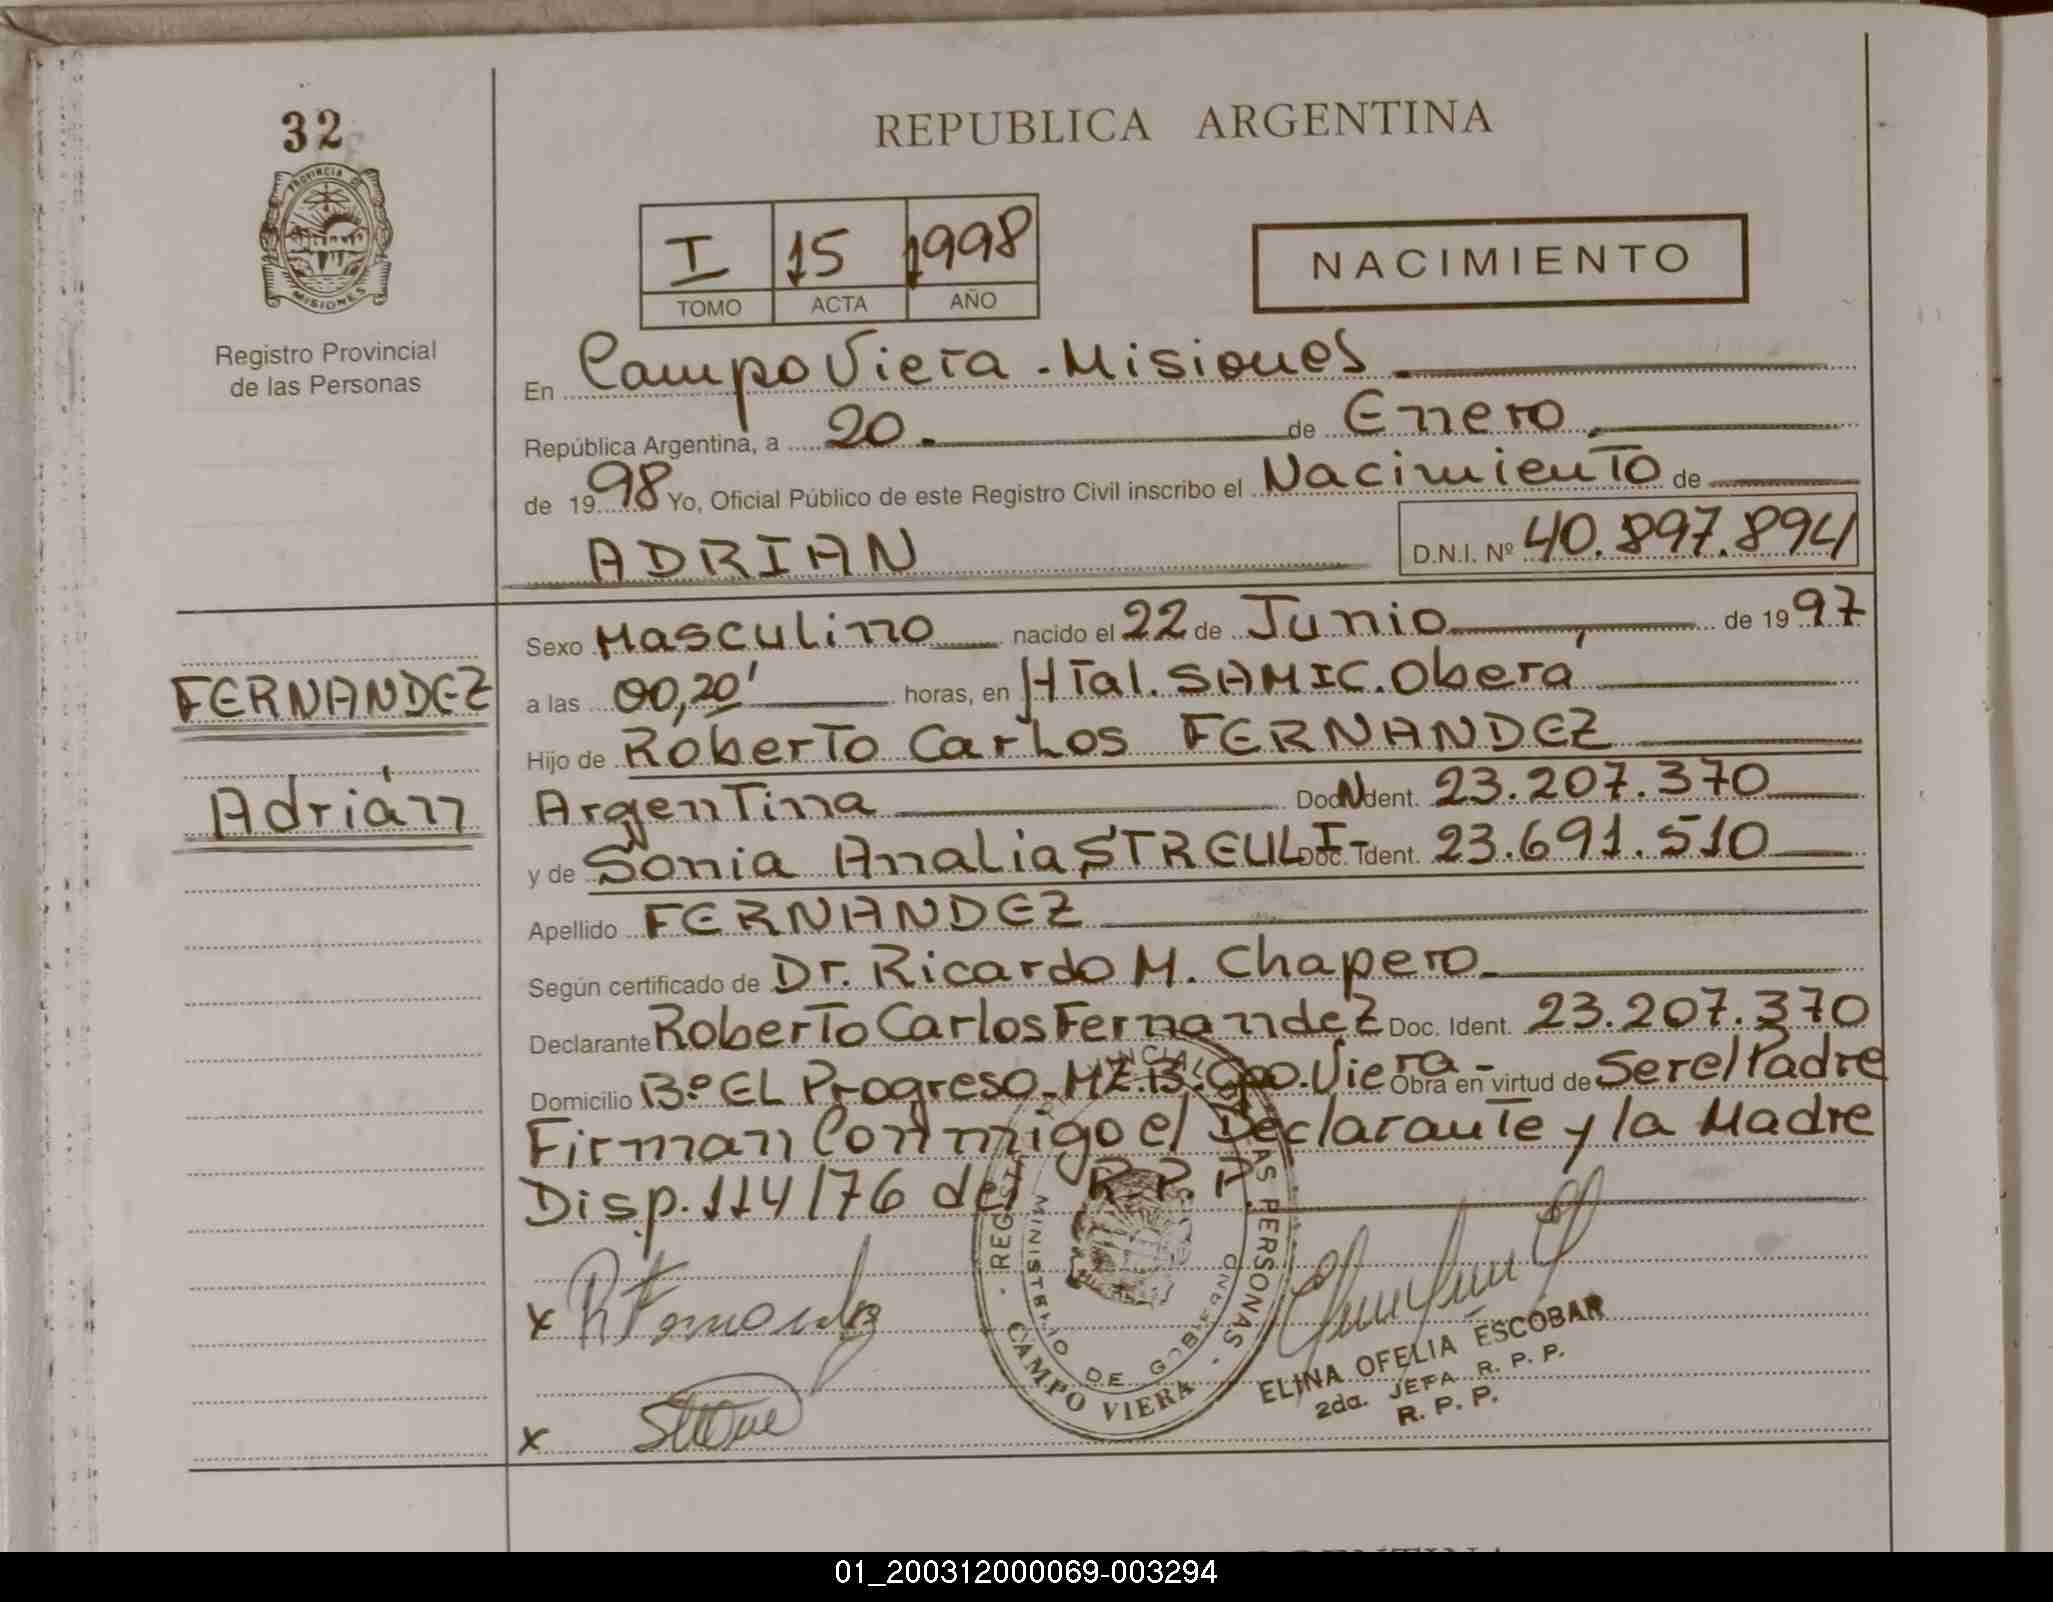 32
PROVINCIA DE
MISIONES
Registro Provincial
de las Personas
REPUBLICA ARGENTINA
I 15 1998
TOMO ACTA AÑO
NACIMIENTO
En Campo Viera - Misiones
República Argentina, a 20 de Enero
de 1998 Yo, Oficial Público de este Registro Civil inscribo el Nacimiento de
ADRIAN D.N.I. Nº 40.897.894
FERNANDEZ
Adrián
Sexo Masculino nacido el 22 de Junio de 1997
a las 00,20' horas, en HTal. SAMIC. Oberá
Hijo de Roberto Carlos FERNANDEZ
Argentina Doc. Ident. 23.207.370
y de Sonia Analia STREULI - Doc. Ident. 23.691.510
Apellido FERNANDEZ
Según certificado de Dr. Ricardo M. Chapero
Declarante Roberto Carlos Fernandez Doc. Ident. 23.207.370
Domicilio Bº EL Progreso - MZ.B. Cpo. Viera - Obra en virtud de Ser el Padre
Firman Conmigo el Declarante y la Madre
Disp. 114/76 del R.P.P.
x R Fernandez
x
REGIST AS PERSONAS
MINISTERIO DE GOBIERNO
CAMPO VIERA
ELINA OFELIA ESCOBAR
2da. JEFA R. P. P.
R. P. P.
01_200312000069-003294